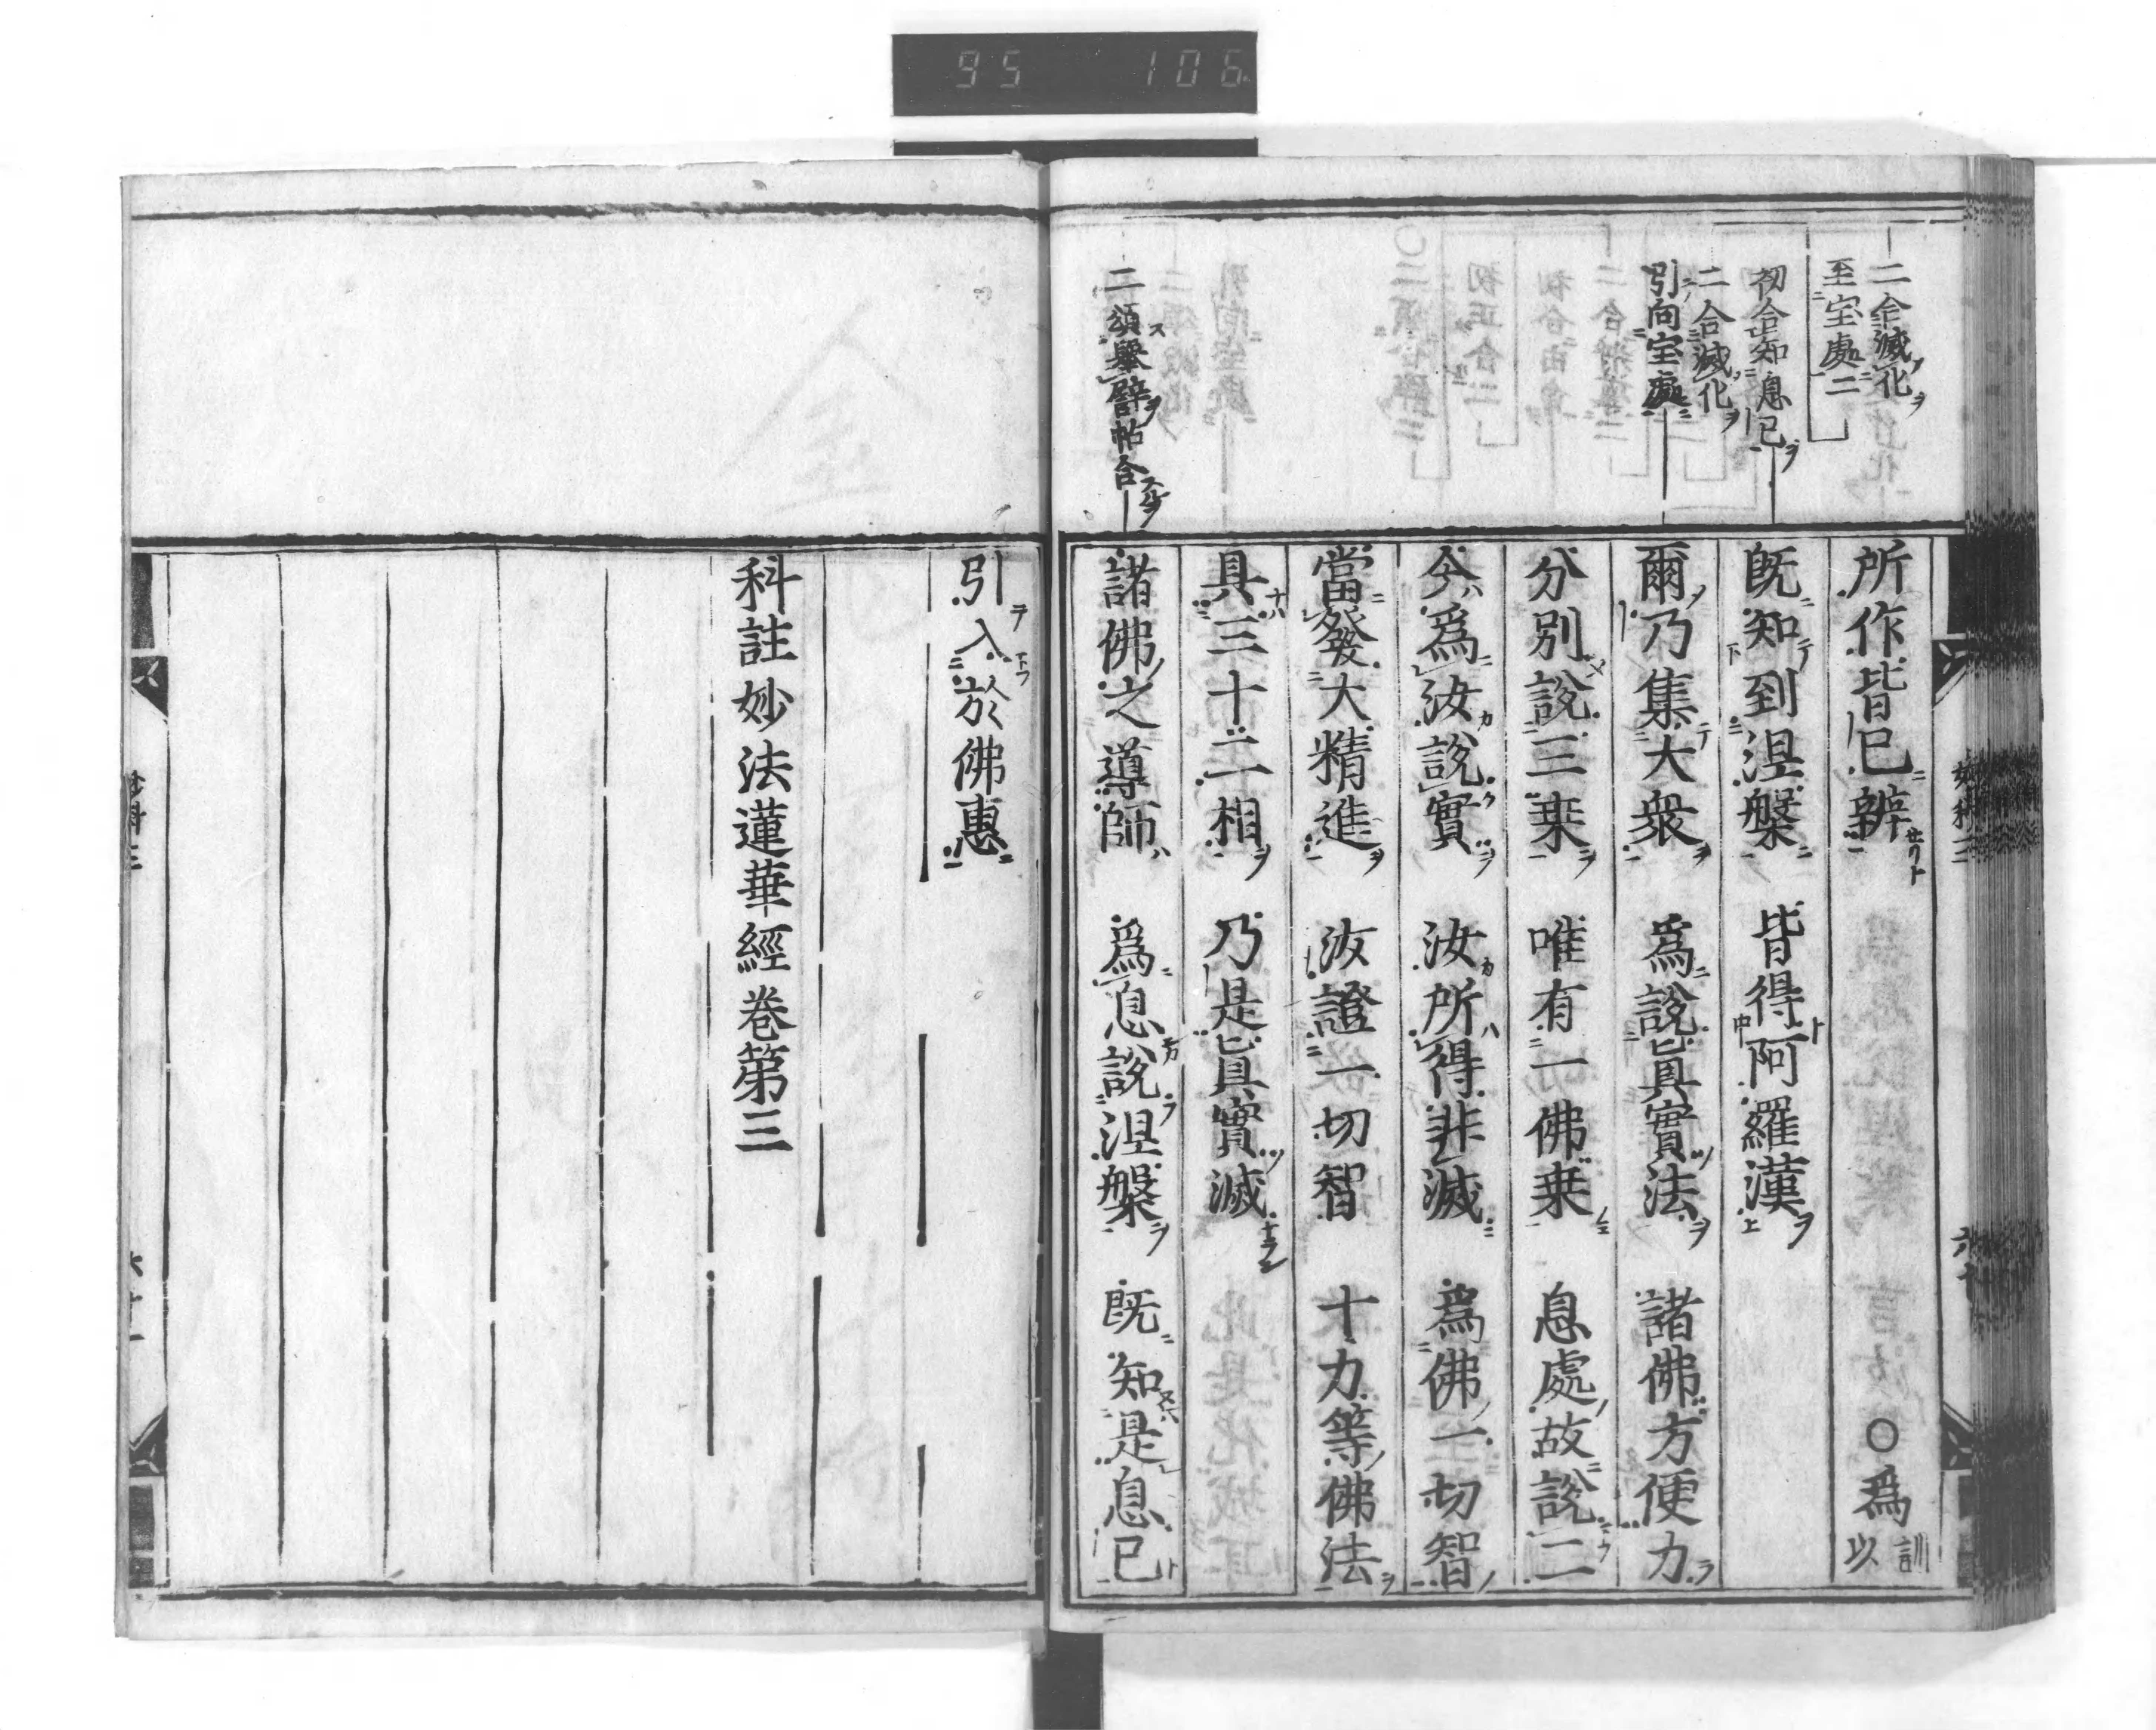 95 106
二合滅化
至宝處二
初合知息已
二合滅化
引向宝處
二頌擧譬帖合
所作皆已辨 ○爲訓以
既知到涅槃 皆得阿羅漢
爾乃集大衆 爲說眞實法 諸佛方便力
分別說三乗 唯有一佛乗 息處故說二
今爲汝說實 汝所得非滅 爲佛一切智
當發大精進 汝證一切智 十力等佛法
具三十二相 乃是眞實滅
諸佛之導師 爲息說涅槃 既知是息已
引入於佛惠
科註妙法蓮華經卷第三